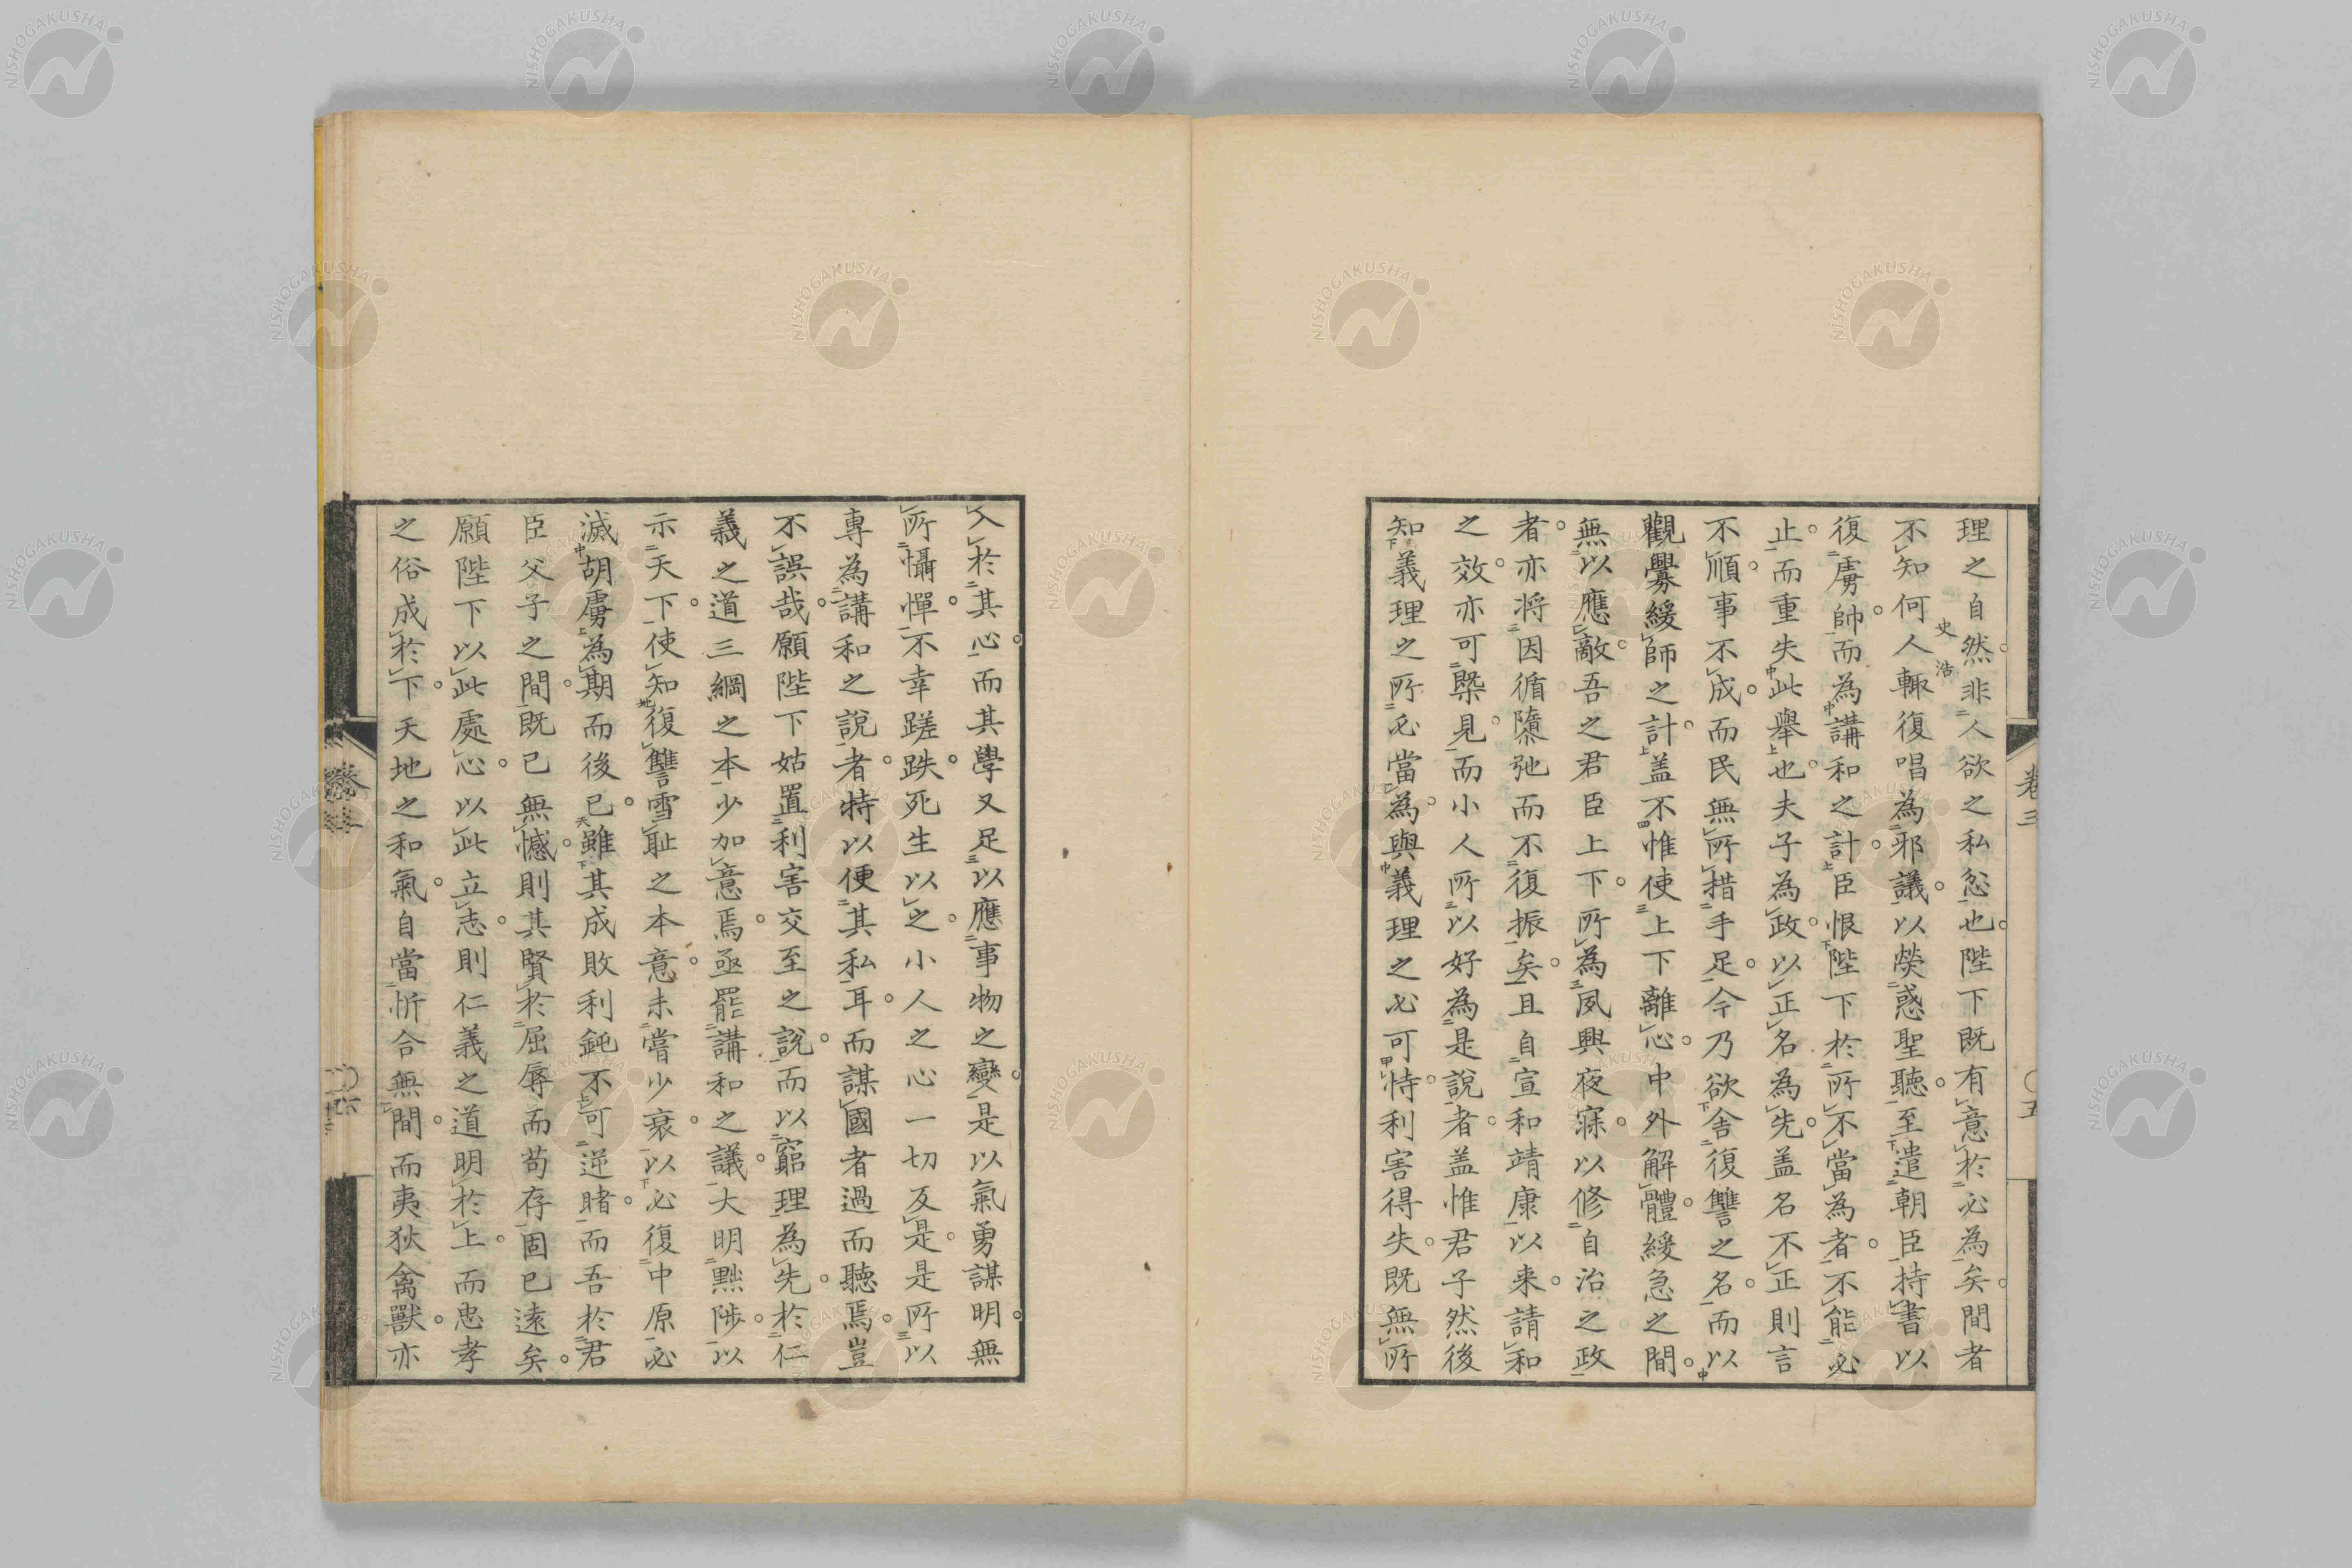 理之自然非人欲之私忿也陛下既有意於必為矣間者
不知何人輒復唱為邪議以熒惑聖聽至遣朝臣持書以
史浩
復虜帥而為講和之計臣恨陛下於所不當為者不能必
止而重失此舉也夫子為政以正名為先盖名不正則言
不順事不成而民無所措手足今乃欲舍復讐之名而以
觀釁緩師之計盖不惟使上下離心中外解體緩急之間
無以應敵吾之君臣上下所為夙興夜寐以修自治之政
者亦将因循隳弛而不復振矣且自宣和靖康以来請和
之效亦可槩見而小人所以好為是說者盖惟君子然後
知義理之所必當為與義理之必可恃利害得失既無所
卷三
〇五
入於其心而其學又足以應事物之變是以氣勇謀明無
所懾憚不幸蹉跌死生以之小人之心一切反是是所以
專為講和之說者特以便其私耳而謀國者過而聽焉豈
不誤哉願陛下姑置利害交至之說而以窮理為先於仁
義之道三綱之本少加意焉亟罷講和之議大明黜陟以
示天下使知復讐雪耻之本意未嘗少衰以必復中原必
滅胡虜為期而後已雖其成敗利鈍不可逆睹而吾於君
臣父子之間既已無憾則其賢於屈辱而苟存固已遠矣
願陛下以此處心以此立志則仁義之道明於上而忠孝
之俗成於下天地之和氣自當忻合無間而夷狄禽獸亦
NISHOGAKUSHA